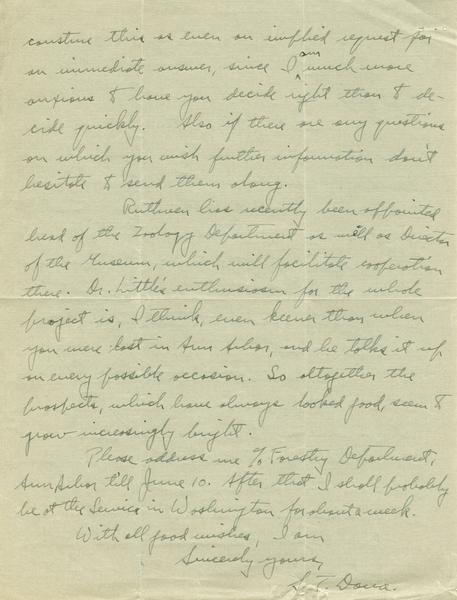 construe this as even an implied request for
an immediate answer, since I am much more
anxious to have you decide right than to de-
cide quickly. Also if there are any questions
on which you wish further information don't
hesitate to send them along.
Ruthven has recently been appointed
head of the Zoology Department as well as Director
of the Museum, which will facilitate cooperation
there. Dr. Little's enthusiasm for the whole
project is, I think, even keener than when
you were last in Ann Arbor, and he talks it up
on every possible occasion. So altogether the
prospects, which have always looked good, seem to
grow increasingly bright.
Please address me % Forestry Department,
Ann Arbor till June 10. After that I shall probably
be at the Service in Washington for about a week.
With all good wishes, I am
Sincerely yours,
S. T. Dana.